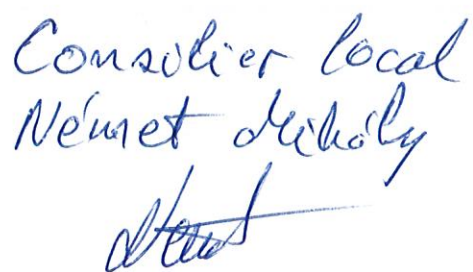 Consilier local
Német Mihály